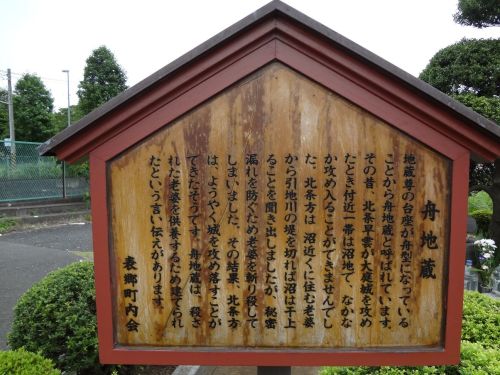 舟地蔵
地蔵尊の台座が舟型になっている
ことから舟地蔵と呼ばれています。
その昔、北条早雲が大庭城を攻め
たとき付近一帯は沼地で、なかな
か攻め入ることができませんでし
た。北条方は、沼近くに住む老婆
から引地川の堤を切れば沼は干上
ることを聞き出しましたが、秘密
漏れを防ぐため老婆を斬り殺して
しまいました。その結果、北条方
は、ようやく城を攻め落すことが
できたそうです。舟地蔵は、殺さ
れた老婆を供養するため建てられ
たという言い伝えがあります。
表郷町内会